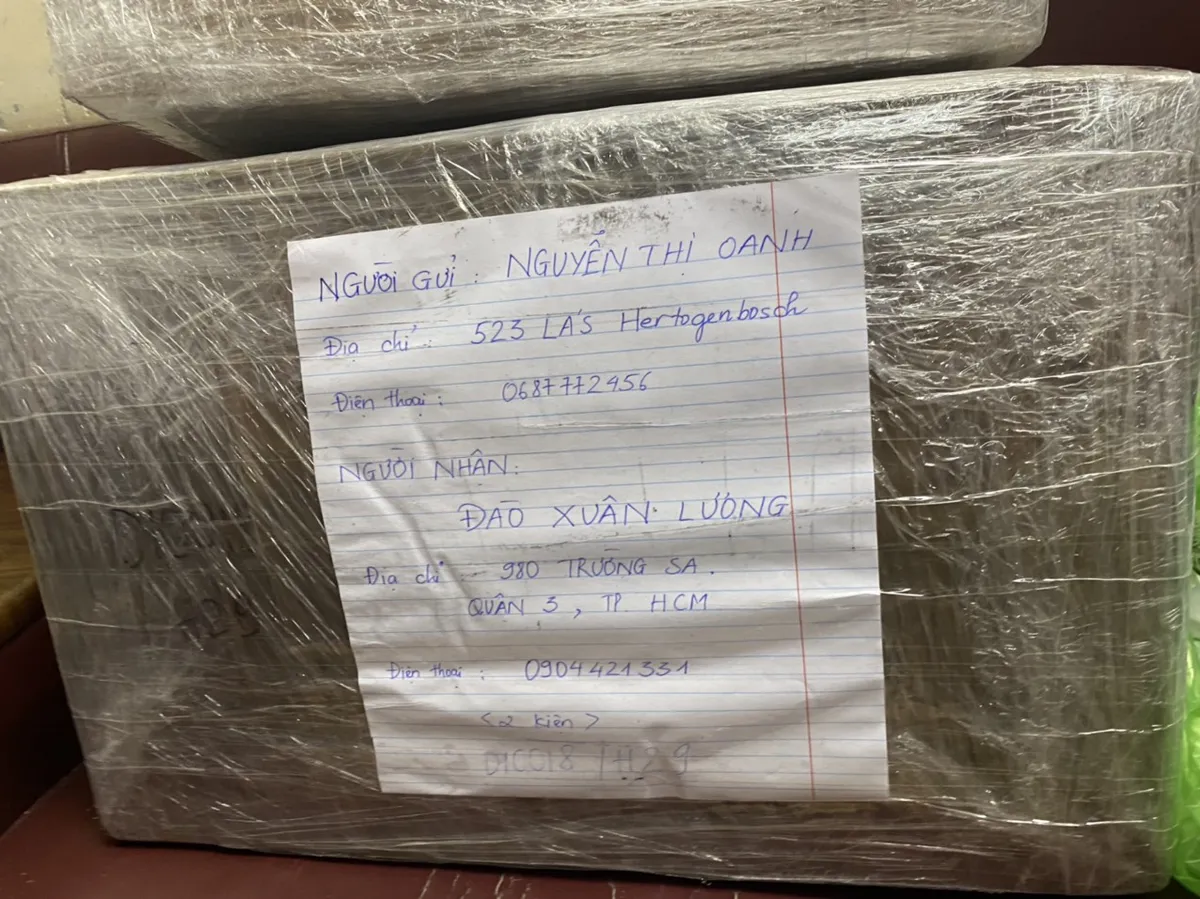 NGƯỜI GỬI : NGUYỄN THỊ OANH
Địa chỉ : 523 LA'S Hertogenbosch
Điện thoại : 0687772456
NGƯỜI NHẬN :
ĐÀO XUÂN LƯƠNG
Địa chỉ : 980 TRƯỜNG SA .
QUẬN 3 , TP HCM
Điện thoại : 0904421331
< 2 kiện >